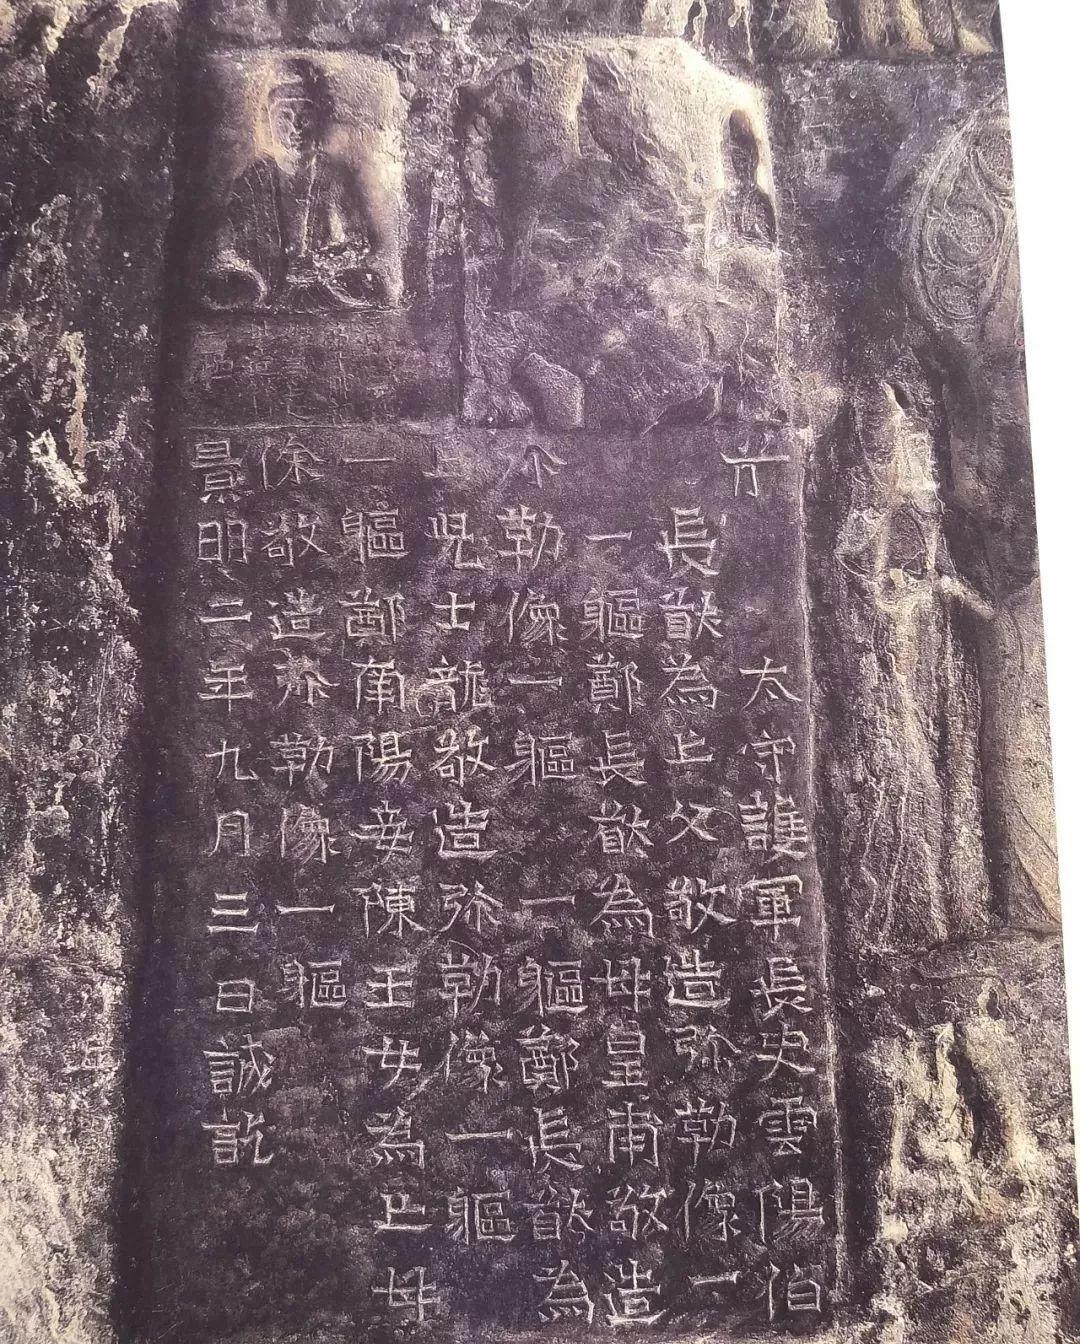 太守護軍長史雲陽伯
長猷為亡父敬造弥勒像一
一軀鄭長猷為母皇甫敬造
勒像一軀 一軀鄭長猷為
亡児士龍敬造弥勒像一軀
一軀鄭南陽妾陳玉女為亡母
徐敬造弥勒像一軀
景明二年九月三日誡訖